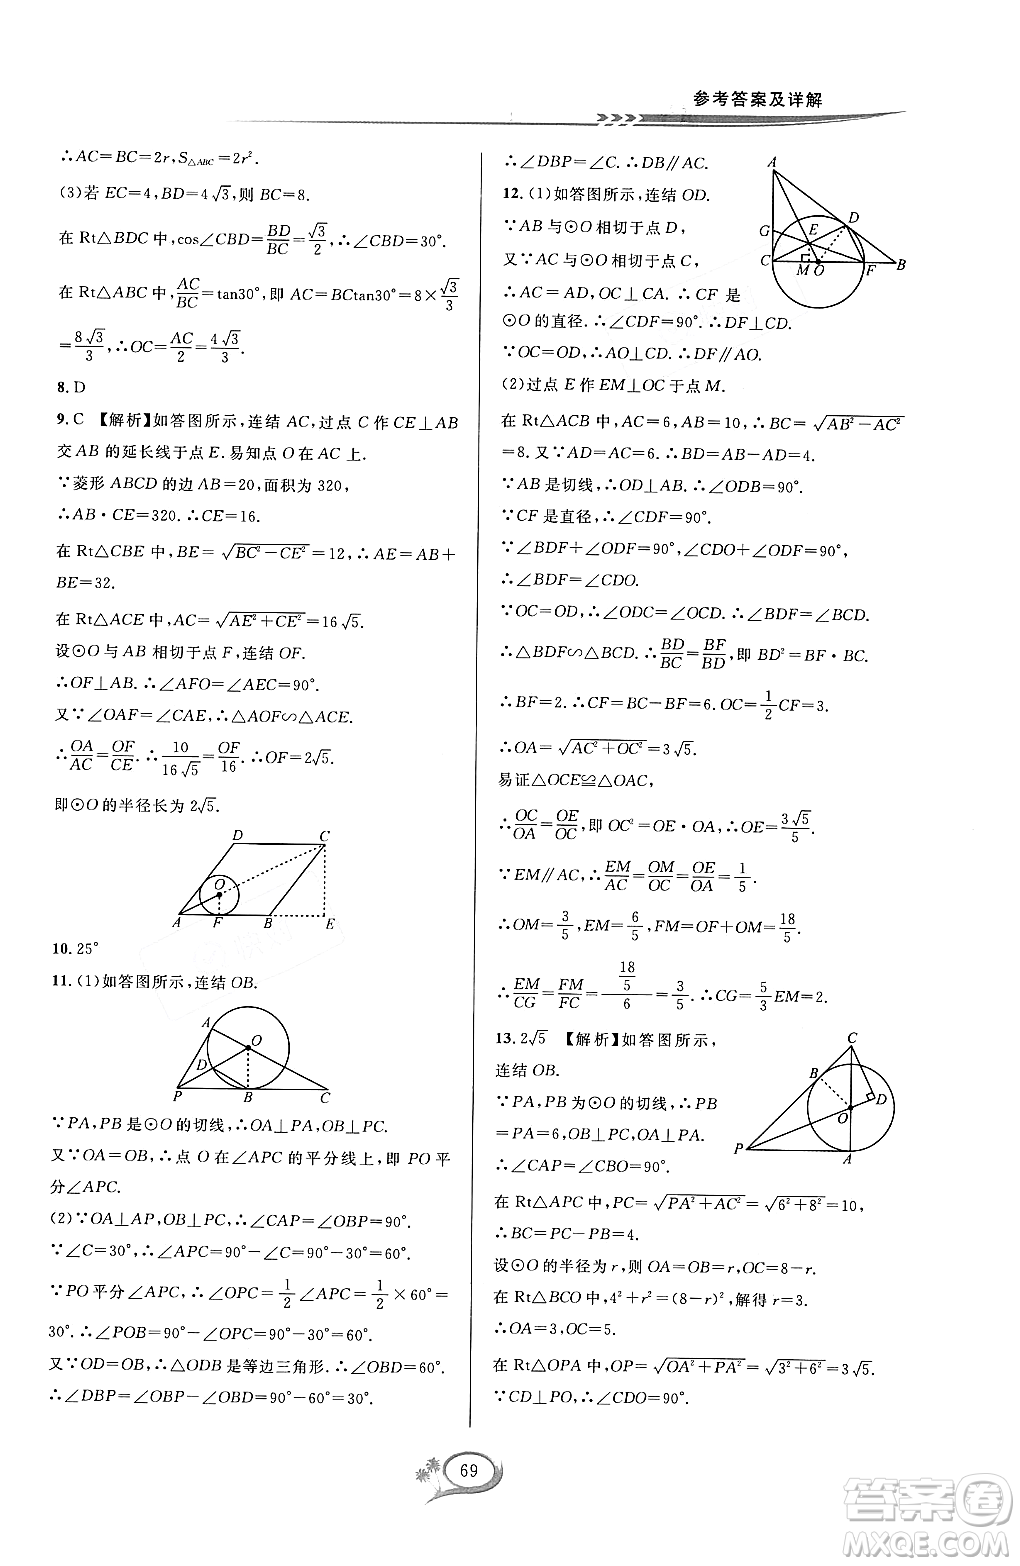 参考答案及详解
∴AC=BC=2r,S△ABC=2r².
(3)若 EC=4,BD=4√3,则 BC=8.
在 Rt△BDC 中,cos∠CBD=BD/BC=√3/2,∴∠CBD=30°.
在 Rt△ABC 中,AC/BC=tan30°,即 AC=BCtan30°=8×√3/3
=8√3/3,∴OC=AC/2=4√3/3.
8. D
9. C 【解析】如答图所示,连结 AC,过点 C 作 CE⊥AB
交 AB 的延长线于点 E. 易知点 O 在 AC 上.
∵菱形 ABCD 的边 AB=20,面积为 320,
∴AB·CE=320. ∴CE=16.
在 Rt△CBE 中,BE=√(BC²-CE²)=12,∴AE=AB+
BE=32.
在 Rt△ACE 中,AC=√(AE²+CE²)=16√5.
设⊙O 与 AB 相切于点 F,连结 OF.
∴OF⊥AB. ∴∠AFO=∠AEC=90°.
又∵∠OAF=∠CAE,∴△AOF∽△ACE.
∴OA/AC=OF/CE. ∴10/16√5=OF/16. ∴OF=2√5.
即⊙O 的半径长为 2√5.
D C
O
A F B E
10. 25°
11. (1)如答图所示,连结 OB.
A
O
D
P B C
∵PA,PB 是⊙O 的切线,∴OA⊥PA,OB⊥PC.
又∵OA=OB,∴点 O 在∠APC 的平分线上,即 PO 平
分∠APC.
(2)∵OA⊥AP,OB⊥PC,∴∠CAP=∠OBP=90°.
∵∠C=30°,∴∠APC=90°-∠C=90°-30°=60°.
∵PO 平分∠APC,∴∠OPC=1/2∠APC=1/2×60°=
30°. ∴∠POB=90°-∠OPC=90°-30°=60°.
又∵OD=OB,∴△ODB 是等边三角形. ∴∠OBD=60°.
∴∠DBP=∠OBP-∠OBD=90°-60°=30°.
∴∠DBP=∠C. ∴DB∥AC.
12. (1)如答图所示,连结 OD.
∵AB 与⊙O 相切于点 D,
又∵AC 与⊙O 相切于点 C,
∴AC=AD,OC⊥CA. ∴CF 是
⊙O 的直径. ∴∠CDF=90°. ∴DF⊥CD.
∵OC=OD,∴AO⊥CD. ∴DF∥AO.
A
G E D
C M O F B
(2)过点 E 作 EM⊥OC 于点 M.
在 Rt△ACB 中,∵AC=6,AB=10,∴BC=√(AB²-AC²)
=8. 又∵AD=AC=6. ∴BD=AB-AD=4.
∵AB 是切线,∴OD⊥AB. ∴∠ODB=90°.
∵CF 是直径,∴∠CDF=90°.
∵∠BDF+∠ODF=90°,∠CDO+∠ODF=90°,
∴∠BDF=∠CDO.
∵OC=OD,∴∠ODC=∠OCD. ∴∠BDF=∠BCD.
∴△BDF∽△BCD. ∴BD/BC=BF/BD,即 BD²=BF·BC.
∴BF=2. ∴CF=BC-BF=6. OC=1/2CF=3.
∴OA=√(AC²+OC²)=3√5.
易证△OCE≌△OAC,
∴OC/OA=OE/OC,即 OC²=OE·OA,∴OE=3√5/5.
∵EM∥AC,∴EM/AC=OM/OC=OE/OA=1/5.
∴OM=3/5,EM=6/5,FM=OF+OM=18/5.
∴EM/CG=FM/FC=(18/5)/6=3/5. ∴CG=5/3EM=2.
13. 2√5 【解析】如答图所示,
连结 OB.
∵PA,PB 为⊙O 的切线,∴PB
=PA=6,OB⊥PC,OA⊥PA.
∴∠CAP=∠CBO=90°.
C
B
D
O
P A
在 Rt△APC 中,PC=√(PA²+AC²)=√(6²+8²)=10,
∴BC=PC-PB=4.
设⊙O 的半径为 r,则 OA=OB=r,OC=8-r.
在 Rt△BCO 中,4²+r²=(8-r)²,解得 r=3.
∴OA=3,OC=5.
在 Rt△OPA 中,OP=√(OA²+PA²)=√(3²+6²)=3√5.
∵CD⊥PO,∴∠CDO=90°.
69
答案圈
MXQE.COM